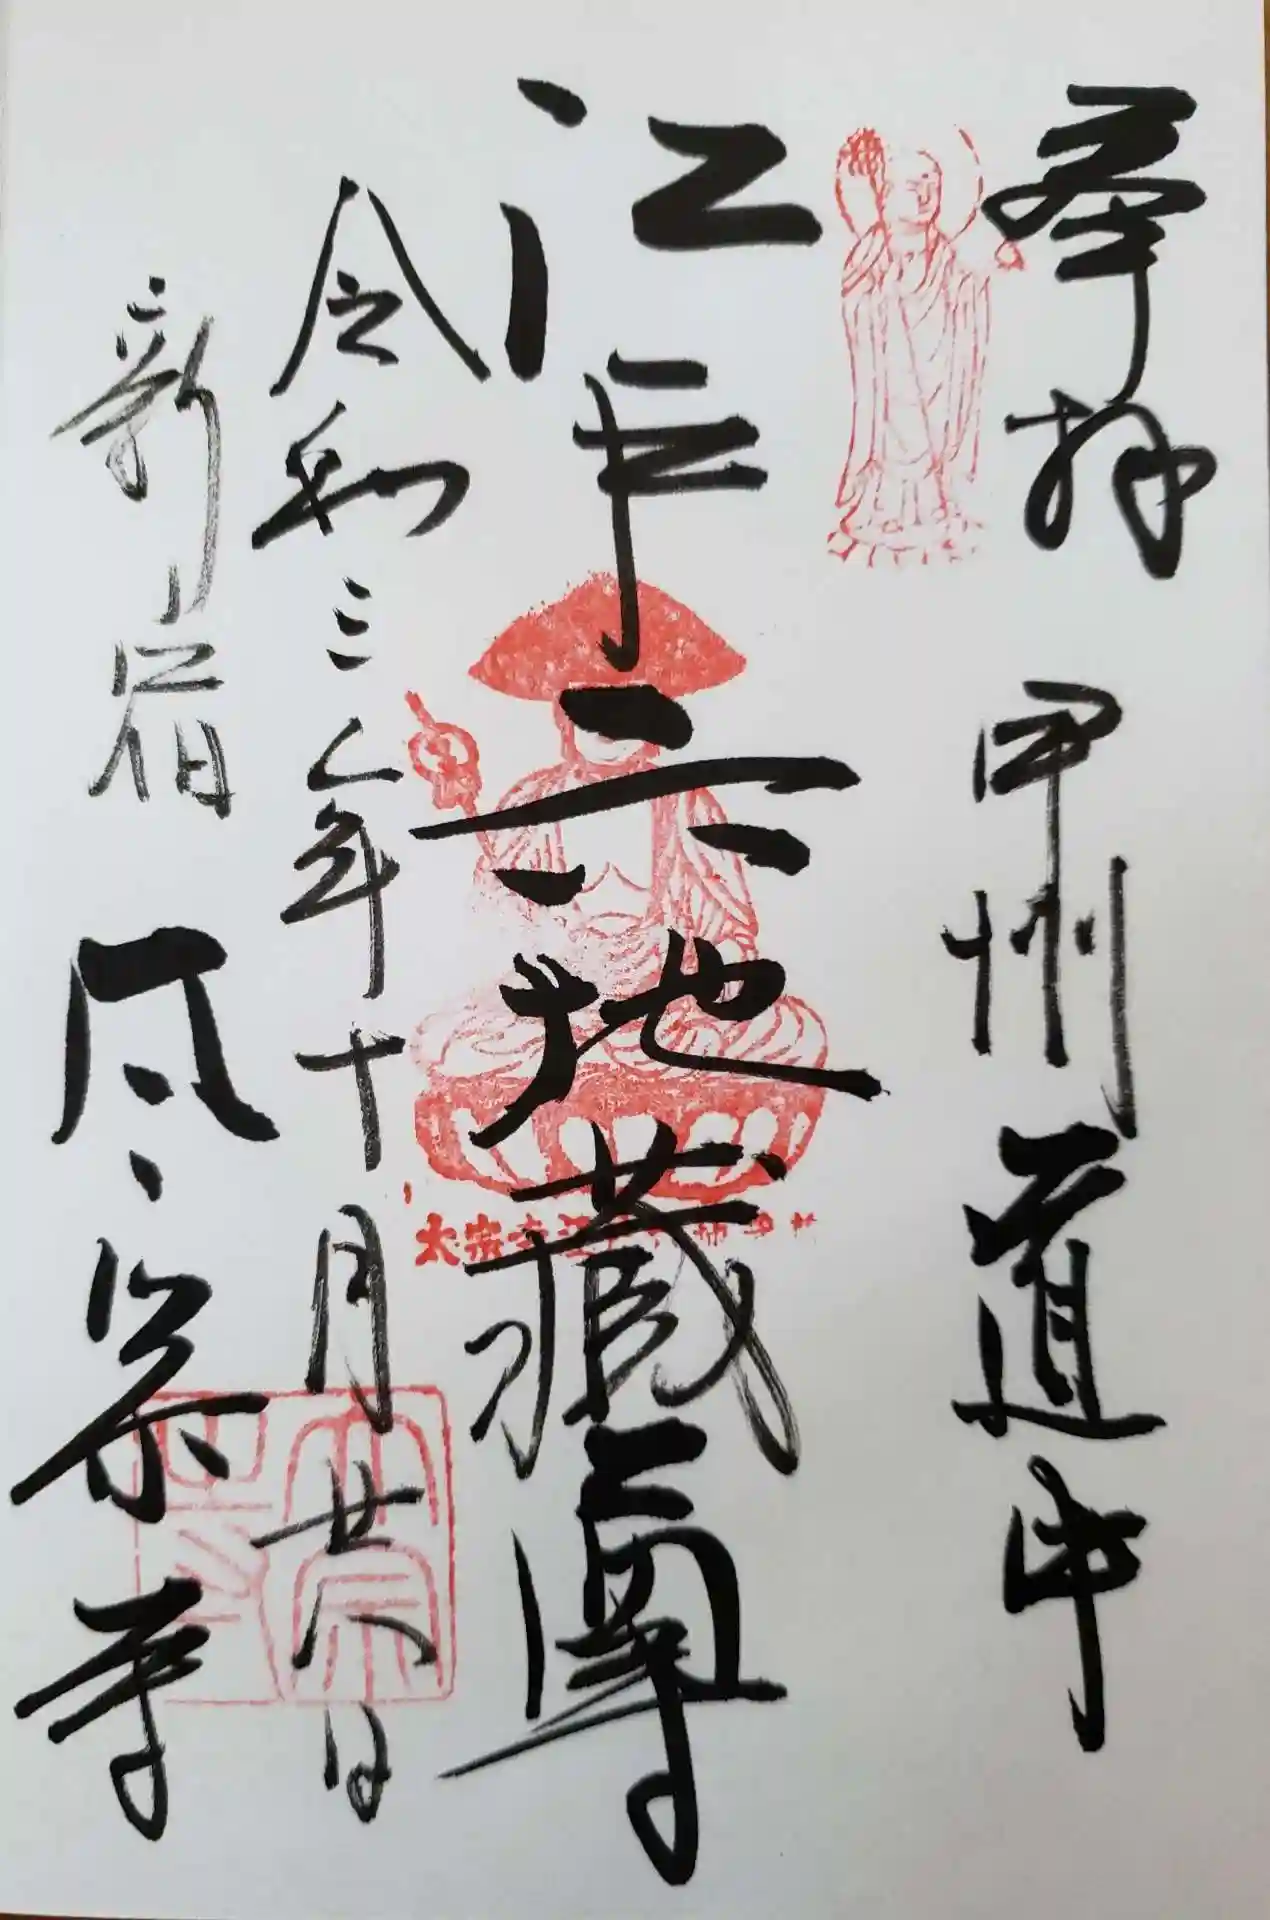 奉拝 甲州道中
江戸六地蔵尊
令和三年十月廿八日
新宿 太宗寺
太宗寺江
太宗